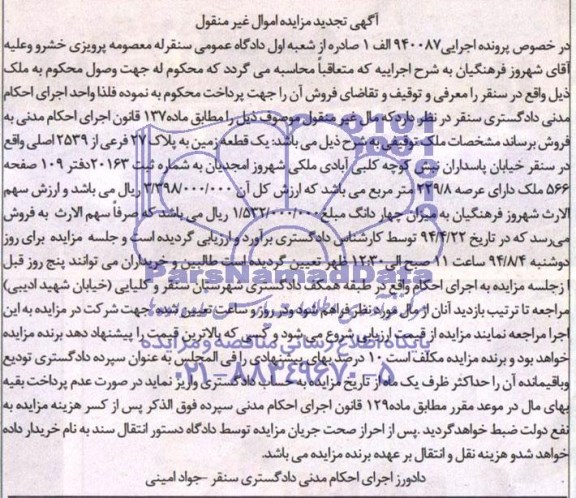 آگهی تجدید مزایده اموال غیر منقول
در خصوص پرونده اجرایی ۹۴۰۰۸۷ الف ۱ صادره از شعبه اول دادگاه عمومی سنقرله معصومه پرویزی خشرو وعلیه
آقای شهروز فرهنگیان به شرح اجراییه که متعاقباً محاسبه می گردد که محکوم له جهت وصول محکوم به ملک
ذیل واقع در سنقر را معرفی و توقیف و تقاضای فروش آن را جهت پرداخت محکوم به نموده فلذا واحد اجرای احکام
مدنی دادگستری سنقر در نظر دارد که مال غیر منقول موصوف ذیل را مطابق ماده ۱۳۷ قانون اجرای احکام مدنی به
فروش برساند مشخصات ملک توقیفی به شرح ذیل می باشد: یک قطعه زمین به پلاک ۲۷ فرعی از ۲۵۳۹ اصلی واقع
در سنقر خیابان پاسداران نبش کوچه کلبی آبادی ملکی شهروز امجدیان به شماره ثبت ۲۰۱۶۳ دفتر ۱۰۹ صفحه
۵۶۶ ملک دارای عرصه ۲۲۹/۸ متر مربع می باشد که ارزش کل آن ۳/۳۹۸/۰۰۰/۰۰۰ ریال می باشد و ارزش سهم
الارث شهروز فرهنگیان به میزان چهار دانگ مبلغ ۱/۵۳۲/۰۰۰/۰۰۰ ریال می باشد که صرفاً سهم الارث به فروش
می‌رسد که در تاریخ ۹۴/۴/۲۲ توسط کارشناس دادگستری برآورد و ارزیابی گردیده است و جلسه مزایده برای روز
دوشنبه ۹۴/۸/۴ ساعت ۱۱ صبح الی ۱۲:۳۰ ظهر تعیین گردیده است طالبین و خریداران می توانند پنج روز قبل
از جلسه مزایده به اجرای احکام واقع در طبقه همکف دادگستری شهرستان سنقر و کلیایی (خیابان شهید ادیبی)
مراجعه تا ترتیب بازدید آنان از مال مورد نظر فراهم شود ودر روز و ساعت تعیین شده جهت شرکت در مزایده به این
اجرا مراجعه نمایند مزایده از قیمت ارزیابی شروع می شود و کسی که بالاترین قیمت را پیشنهاد دهد برنده مزایده
خواهد بود و برنده مزایده مکلف است ۱۰ درصد بهای پیشنهادی را فی المجلس به عنوان سپرده دادگستری تودیع
وباقیمانده آن را حداکثر ظرف یک ماه از تاریخ مزایده به حساب دادگستری واریز نماید در صورت عدم پرداخت بقیه
بهای مال در موعد مقرر مطابق ماده ۱۲۹ قانون اجرای احکام مدنی سپرده فوق الذکر پس از کسر هزینه مزایده به
نفع دولت ضبط خواهد گردید .پس از احراز صحت جریان مزایده توسط دادگاه دستور انتقال سند به نام خریدار داده
خواهد شدو هزینه نقل و انتقال بر عهده برنده مزایده می باشد.
دادورز اجرای احکام مدنی دادگستری سنقر -جواد امینی
ParsNamadData
پایگاه اطلاع رسانی مناقصه و مزایده
۰۲۱-۸۸۳۴۹۶۷۰-۵